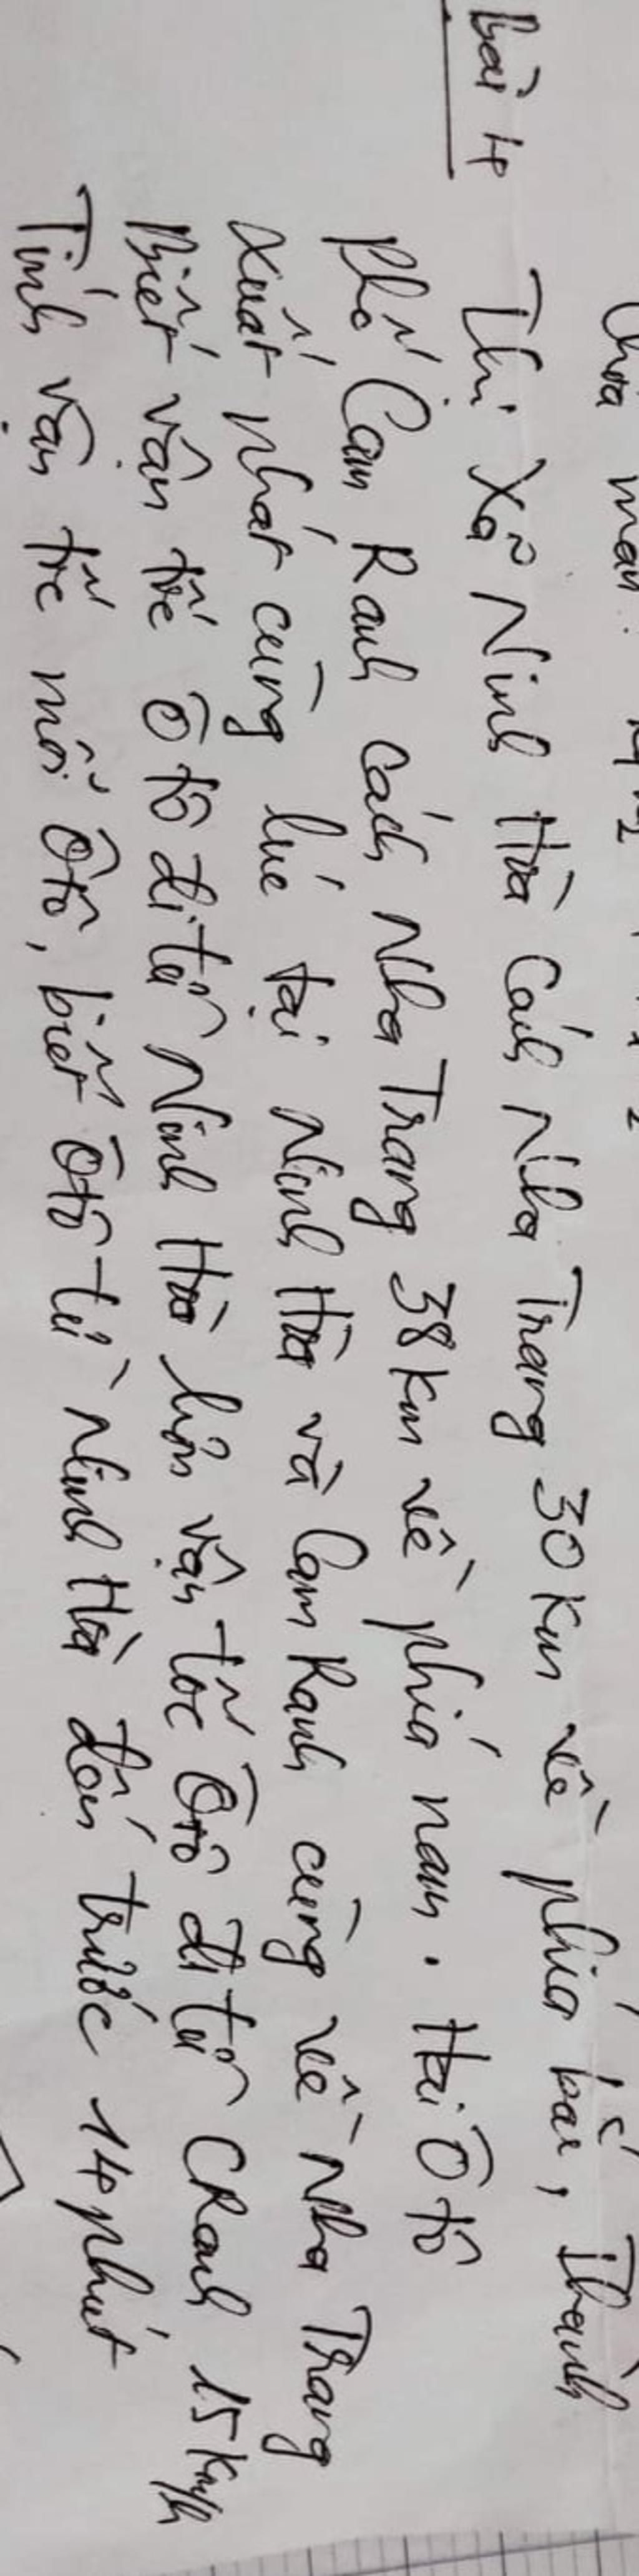 Bài 4
Thị Xã Ninh Hòa Cách Nha Trang 30 km về phía bắc, Thành
phố Cam Ranh cách Nha Trang 38 km về phía nam. Hai Ô tô
xuất phát cùng lúc tại Ninh Hòa và Cam Ranh cùng về Nha Trang
Biết vận tốc ô tô đi từ Ninh Hòa hơn vận tốc Ôtô đi từ CRanh 15 km/h
Tính vận tốc mỗi Ôtô, biết Ôtô từ Ninh Hòa đến trước 14 phút